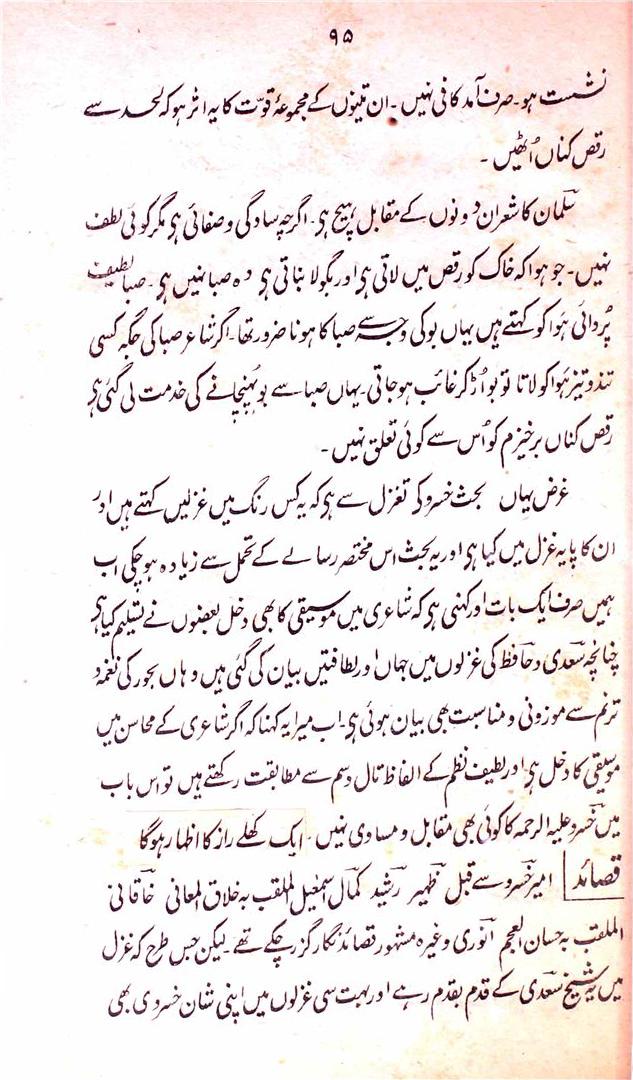 ۹۵
نشست ہو۔ صرف آمد کافی نہیں۔ ان تینوں کے مجموعۂ قوت کا یہ اثر ہو کہ لحد سے
رقص کناں اُٹھیں۔
سلمان کا شعر ان دونوں کے مقابل ہیچ ہی۔ اگرچہ سادگی و صفائی ہی مگر کوئی لطف
نہیں۔ جو ہوا کہ خاک کو رقص میں لاتی ہی اور بگولا بناتی ہی وہ صبا نہیں ہی۔ صبا لطیف
پُروائی ہوا کو کہتے ہیں یہاں بو کی وجہ سے صبا کا ہونا ضرور تھا۔ اگر شاعر صبا کی جگہ کسی
تند و تیز ہوا کو لاتا تو بو اُڑ کر غائب ہو جاتی۔ یہاں صبا سے بو پہنچانے کی خدمت لی گئی ہی
رقص کناں برخیزم کو اُس سے کوئی تعلق نہیں۔
غرض یہاں بحث خسرو کی تغزل سے ہی کہ یہ کس رنگ میں غزلیں کہتے ہیں اور
ان کا پایہ غزل میں کیا ہی اور یہ بحث اس مختصر رسالے کے تحمل سے زیادہ ہو چکی اب
ہمیں صرف ایک بات اور کہنی ہی کہ شاعری میں موسیقی کا بھی دخل بعضوں نے تسلیم کیا ہی
چنانچہ سعدی و حافظ کی غزلوں میں جہاں اور لطافتیں بیان کی گئی ہیں وہاں بحور کی نغمہ و
ترنم سے موزونی و مناسبت بھی بیان ہوئی ہی۔ اب میرا یہ کہنا کہ اگر شاعری کے محاسن میں
موسیقی کا دخل ہی اور لطیف نظم کے الفاظ تال و سم سے مطابقت رکھتے ہیں تو اس باب
میں خسرو علیہ الرحمہ کا کوئی بھی مقابل و مساوی نہیں۔ ایک کھلے راز کا اظہار ہوگا
قصائد امیر خسرو سے قبل ظہیر رشید کمال اسمٰعیل الملقب بہ خلاق المعانی خاقانی
الملقب بہ حسان العجم انوری وغیرہ مشہور قصائد نگار گزر چکے تھے۔ لیکن جس طرح کہ غزل
میں یہ شیخ سعدی کے قدم بقدم رہے اور بہت سی غزلوں میں اپنی شان خسروی بھی